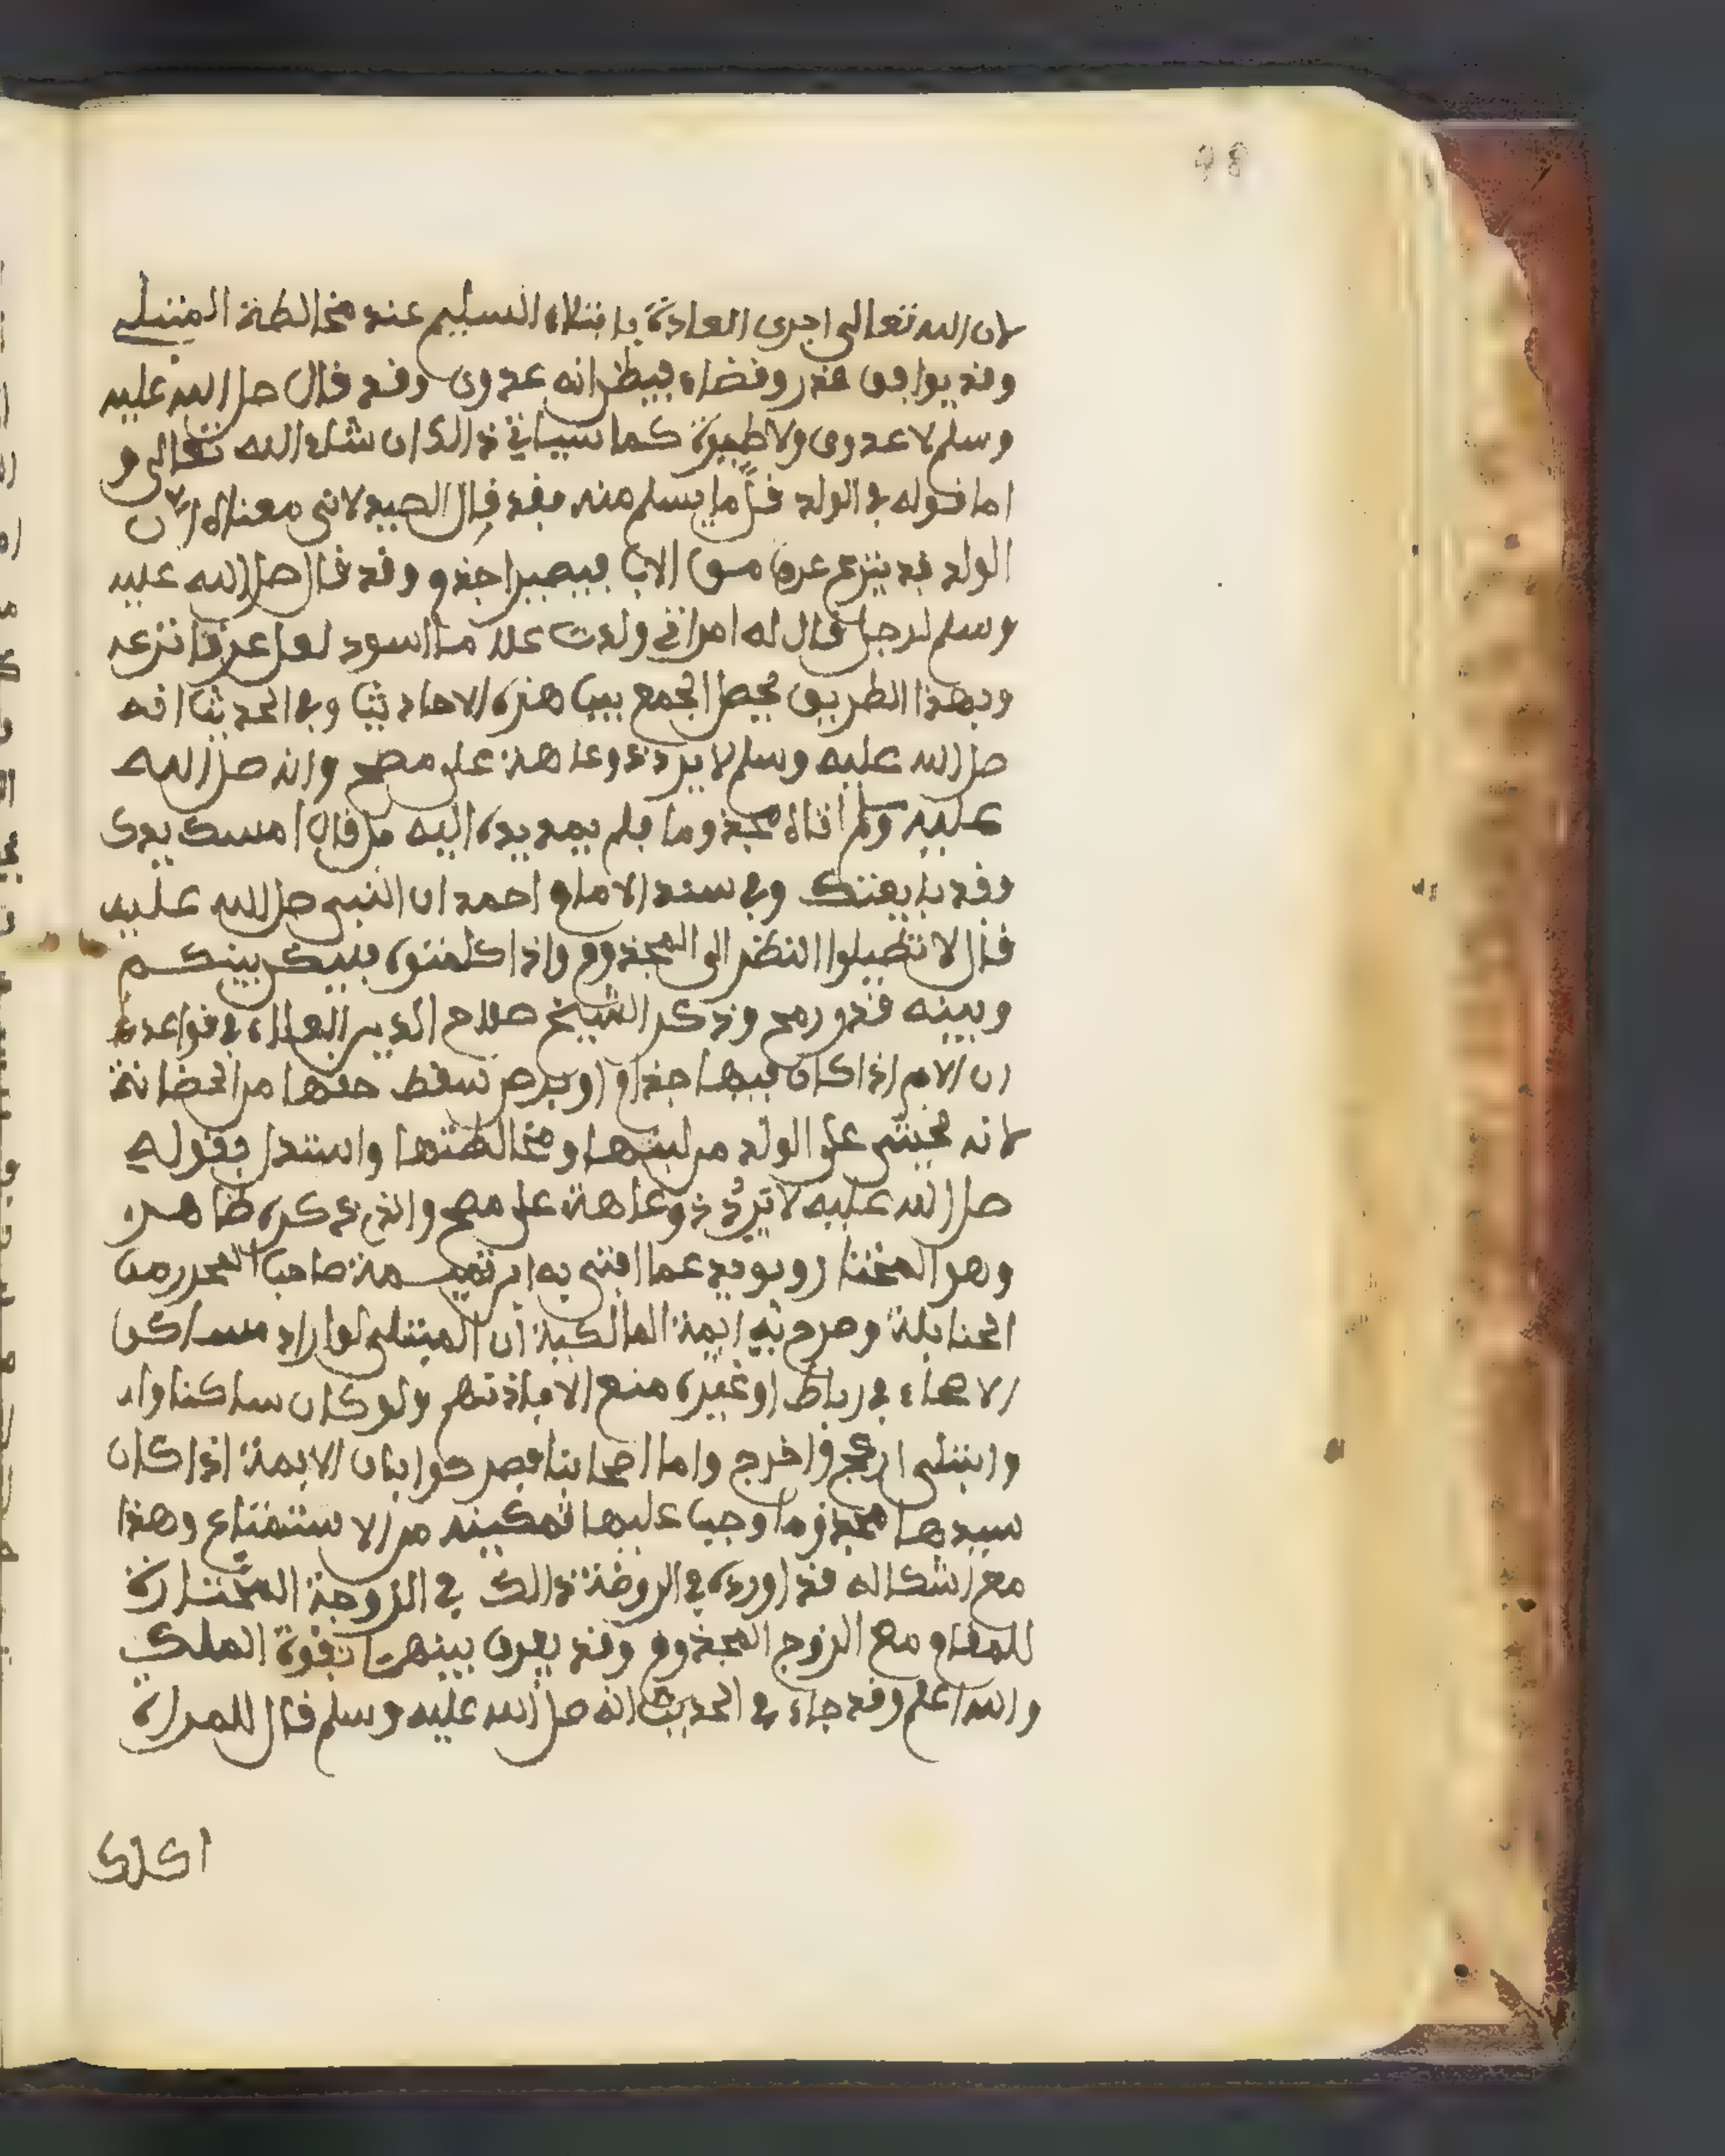 98
لان الله تعالى اجرى العادة بابتلاء السليم عند مخالطة المبتلى
وقد يوافق قدر وقضاء فيظن انه عدوى وقد قال صلى الله عليه
وسلم لا عدوى ولا طيرة كما سياتي ذالك ان شاء الله تعالى و
اما قوله في الولد قل ما يسلم منه فقد قال الصيدلاني معناه ان
الولد قد ينزع عرق من الاب فيصير اجذم وقد قال صلى الله عليه
وسلم لرجل قال له امراتي ولدت غلاما اسود لعل عرقا نزعه
وبهذا الطريق يحصل الجمع بين هذه الاحاديث وفي الحديث انه
صلى الله عليه وسلم لا يرد ذو عاهة على مصح وانه صلى الله
عليه وسلم اتاه مجذوما فلم يمد يده اليه بل قال امسك يدك
وقد بايعتك وفي مسند الامام احمد ان النبي صلى الله عليه
قال لا تطيلوا النظر الى المجذوم واذا كلمتوه فليكن بينكم
وبينه قدر رمح وذكر الشيخ صلاح الدين العلاء في قواعده
ان الام اذا كان فيها جذام او برص سقط حقها من الحضانة
لانه يخشى على الولد من لبنها ومخالطتها واستدل بقوله
صلى الله عليه لا يرد ذو عاهة على مصح والذي ذكره ظاهر
وهو المختار ويويده ما افتى به ابن تيمية صاحب المحرر من
الحنابلة وصرح به ايمة المالكية ان المبتلى لو اراد مساكن
الاصحاء في رباط او غيره منع الا باذنهم ولو كان ساكنا واد
وابتلى ازعج واخرج واما اصحابنا فصرحوا بان الايمة اذا كان
سيدها مجذوما وجب عليها تمكينه من الاستمتاع وهذا
مع اشكاله قد اورده في الروضة ذالك في الزوجة المختارة
للمقام مع الزوج المجذوم وقد يفرق بينهما بقوة الملك
والله اعلم وقد جاء في الحديث انه صلى الله عليه وسلم قال للمراة
اكلك